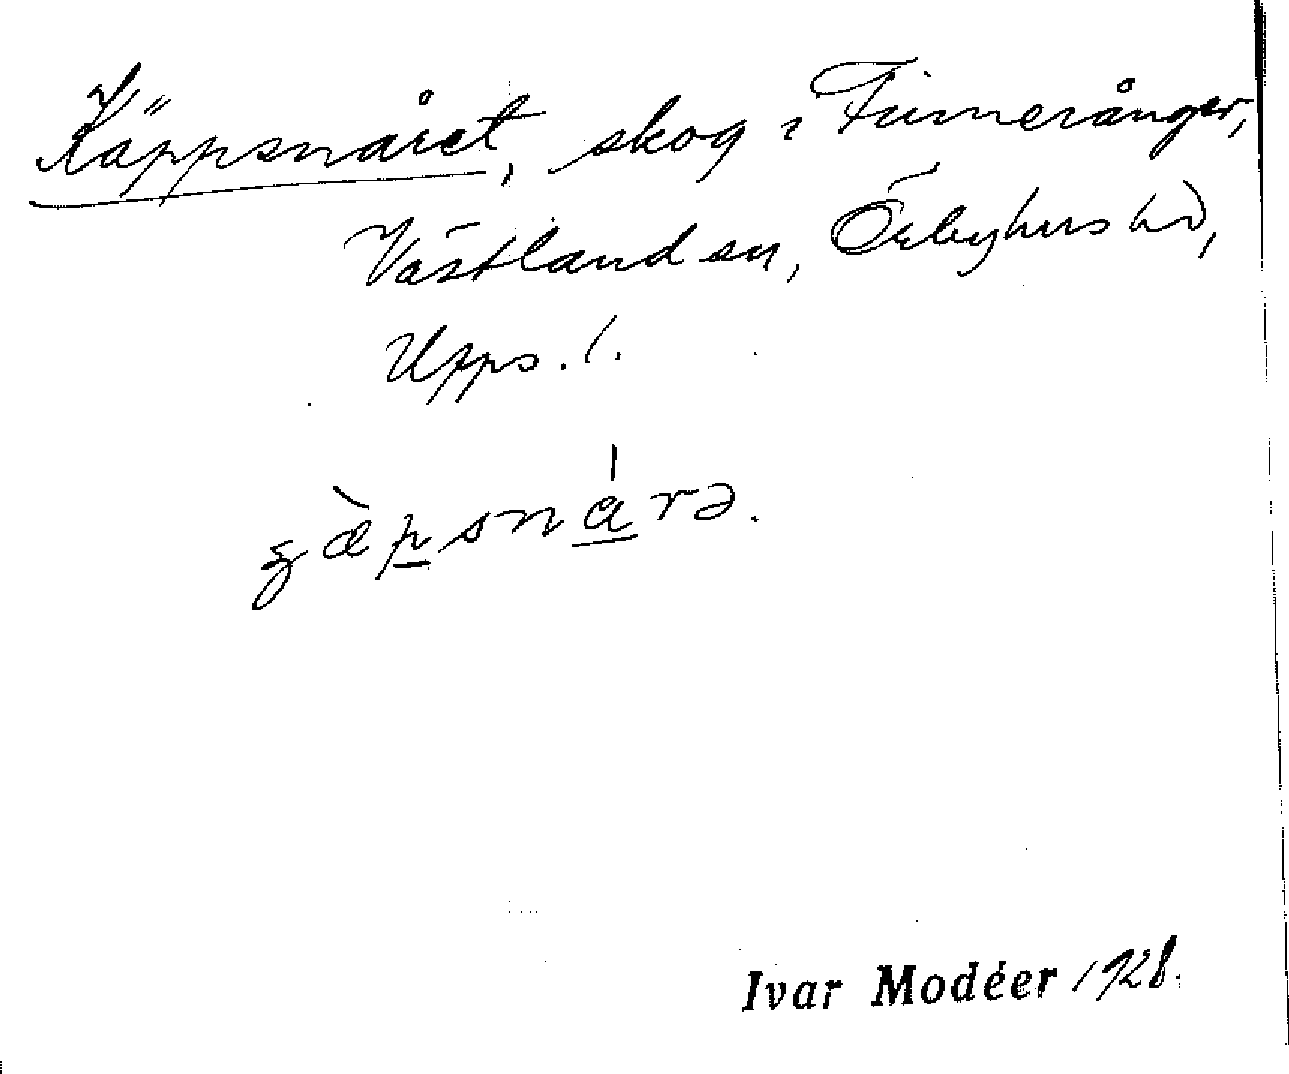 Käppsnåret, skog i Fimmerånger,
Västland sn, Örbyhus hd,
Upps. l.
Ivar Modéer 1928.